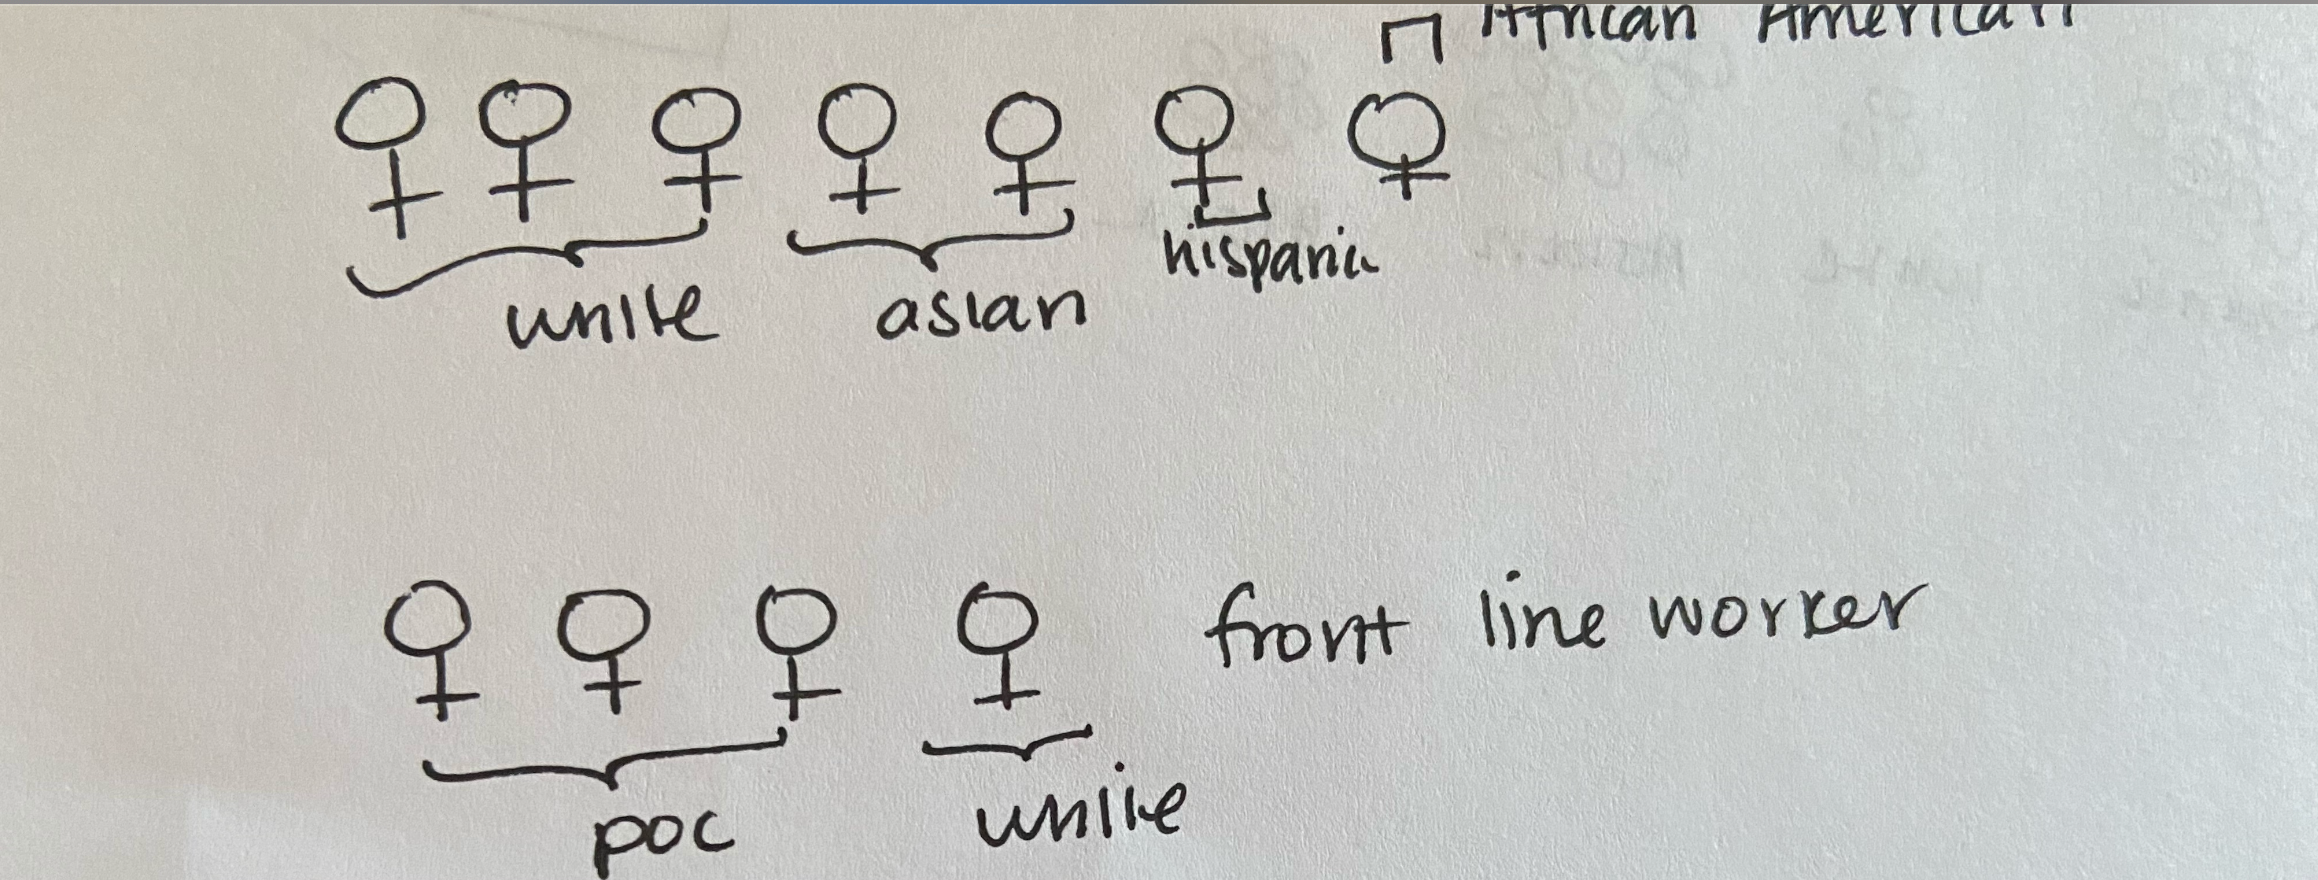 African American
hispanic
white asian
front line worker
poc white